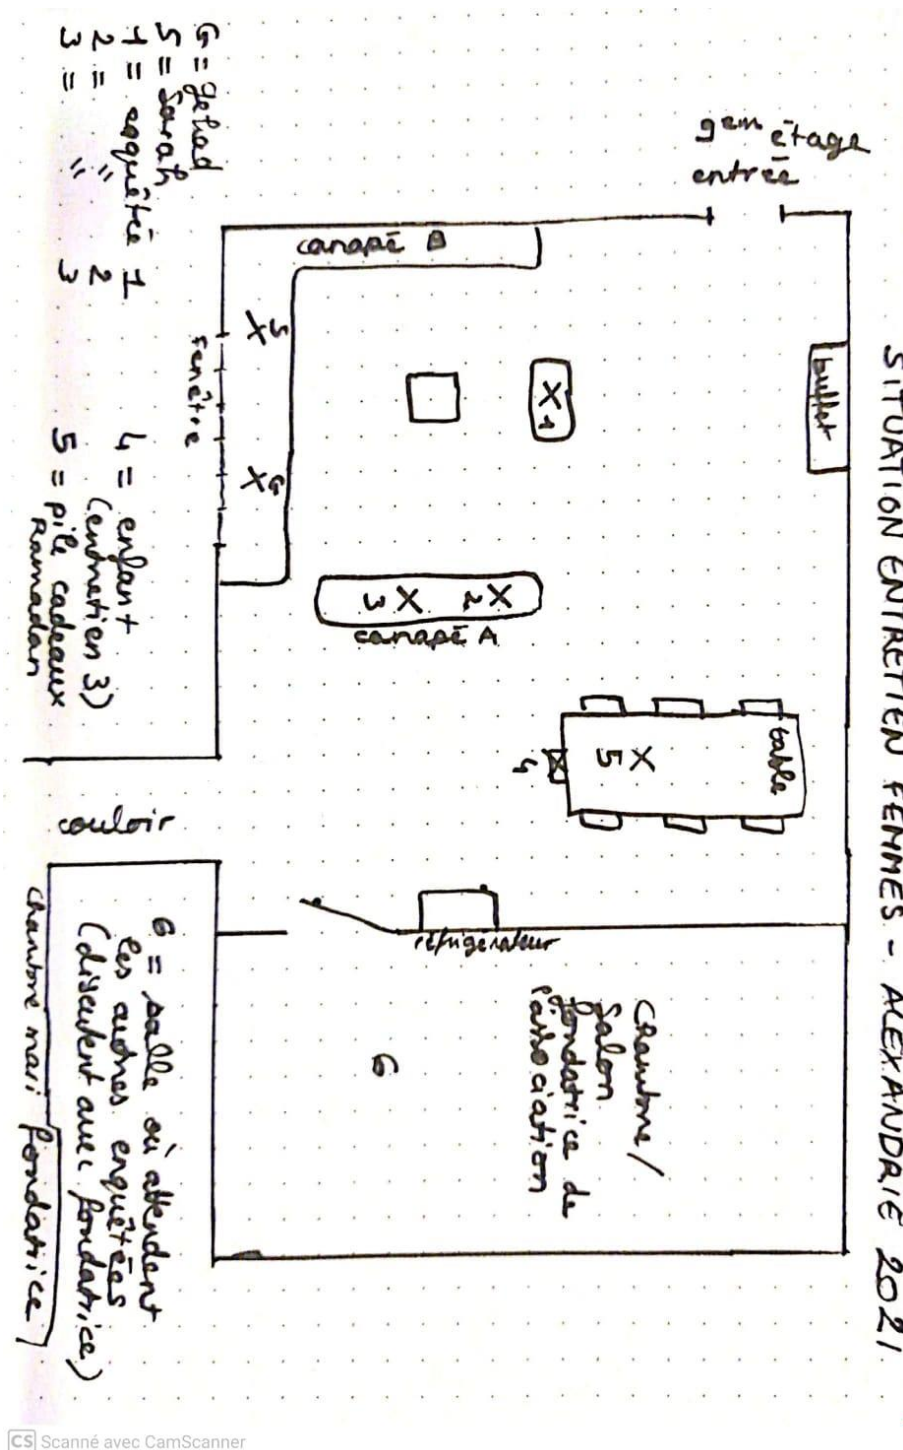 SITUATION ENTRETIEN FEMMES - ALEXANDRIE 2021
9em étage
entrée
canapé B
buffet
fenêtre
X S
X G
X 1
3 X 2 X
canapé A
table
5 X
4
couloir
réfrigérateur
Chambre /
Salon
fondatrice de
l'association
6
G = Jehad
S = Sarah
1 = enquêtée 1
2 = " 2
3 = " 3
4 = enfant
(entretien 3)
5 = pile cadeaux
Ramadan
6 = salle où attendent
les autres enquêtées
(discutent avec fondatrice)
chambre mari fondatrice
CS Scanné avec CamScanner